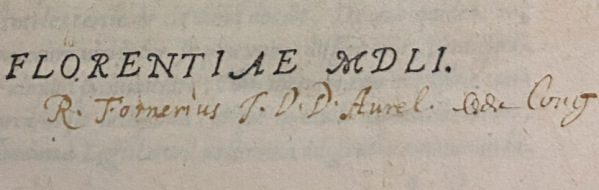 FLORENTIAE MDLI.
R. Fornerius J. D. D. Aurel.